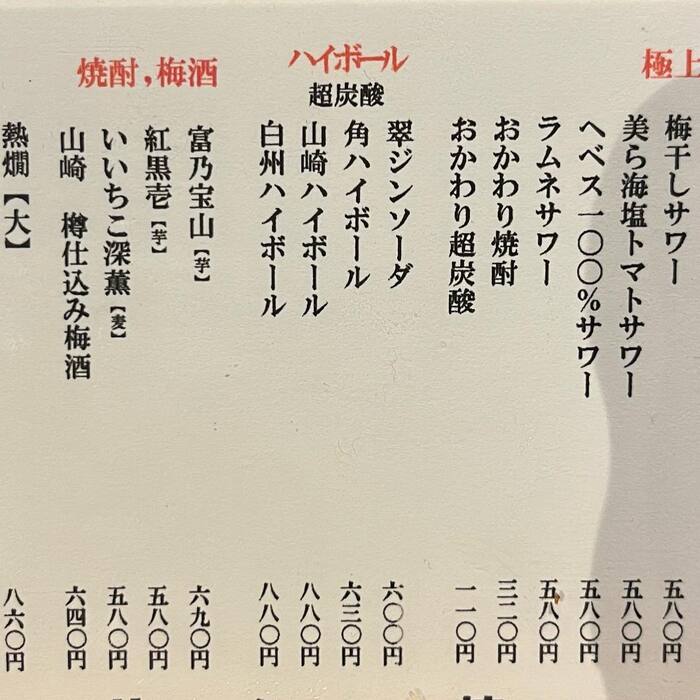 極上
梅干しサワー 五八〇円
美ら海塩トマトサワー 五八〇円
へベス一〇〇%サワー 五八〇円
ラムネサワー 五八〇円
おかわり焼酎 三二〇円
おかわり超炭酸 一一〇円
ハイボール
超炭酸
翠ジンソーダ 六〇〇円
角ハイボール 六三〇円
山崎ハイボール 八八〇円
白州ハイボール 八八〇円
焼酎,梅酒
富乃宝山【芋】 六九〇円
紅黒壱【芋】 五八〇円
いいちこ深薫【麦】 五八〇円
山崎 樽仕込み梅酒 六四〇円
熱燗【大】 八六〇円